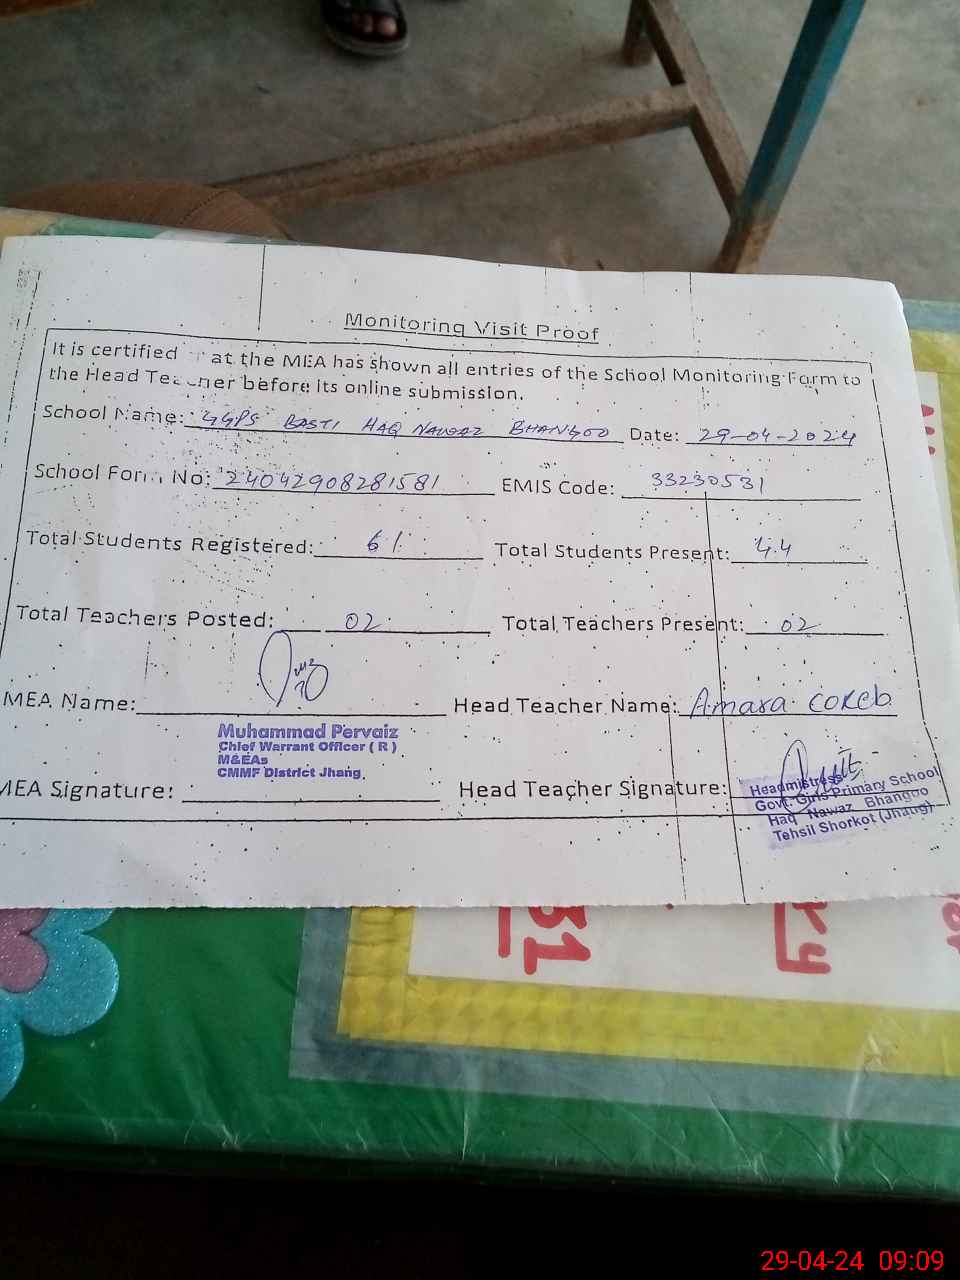 Monitoring Visit Proof
It is certified at the MEA has shown all entries of the School Monitoring Form to
the Head Teacher before its online submission.
School Name: GGPS BASTI HAQ NAWAZ BHANGOO Date: 29-04-2024
School Form No: 24042908281581 EMIS Code: 33230531
Total Students Registered: 61 Total Students Present: 44
Total Teachers Posted: 02 Total Teachers Present: 02
MEA Name: Head Teacher Name: Amara
Muhammad Pervaiz
Chief Warrant Officer ( R )
M&EAs
CMMF District Jhang
MEA Signature: Head Teacher Signature:
Headmistress
Govt. Girls Primary School
Haq Nawaz Bhangoo
Tehsil Shorkot (Jhang)
31
ry
29-04-24 09:09